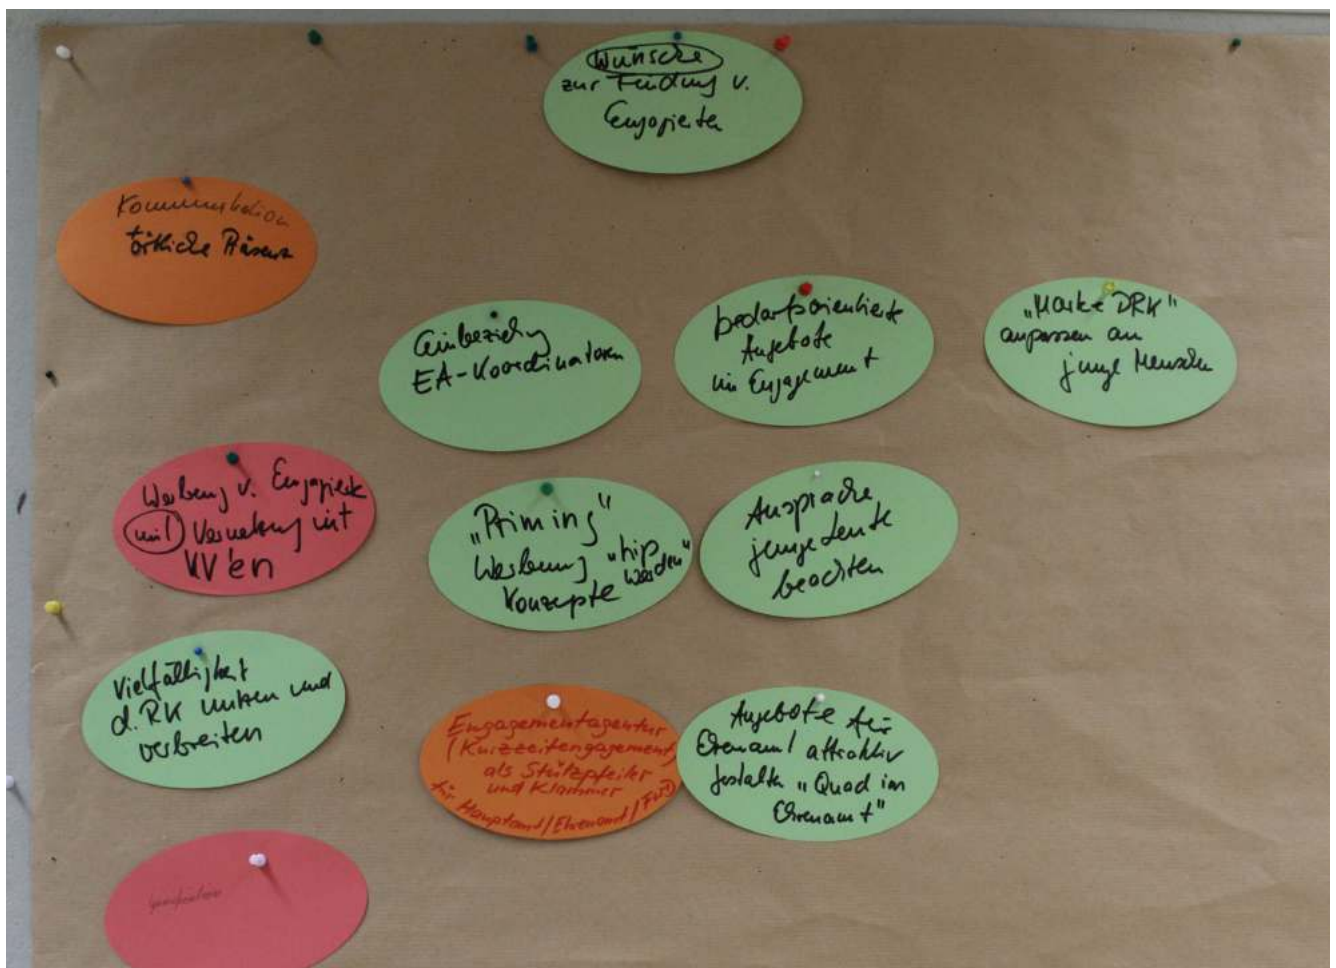 Wünsche
zur Findung v.
Engagierten
Kommunikation
+
örtliche Präsenz
Einbeziehg
EA-Koordinatoren
bedarfsorientierte
Angebote
im Engagement
"Marke DRK"
anpassen an
junge Menschen
Werbung v. Engagierte
mit Vernetzung mit
KV'en
"Priming"
Werbung "hip
Konzepte werden"
Ansprache
junge Leute
beachten
Vielfältigkeit
d. RK nutzen und
verbreiten
Engagementagentur
(Kurzzeitengagement)
als Stützpfeiler
und Klammer
für Hauptamt/Ehrenamt/FWD
Angebote für
Ehrenamt attraktiv
gestalten "Quad im
Ehrenamt"